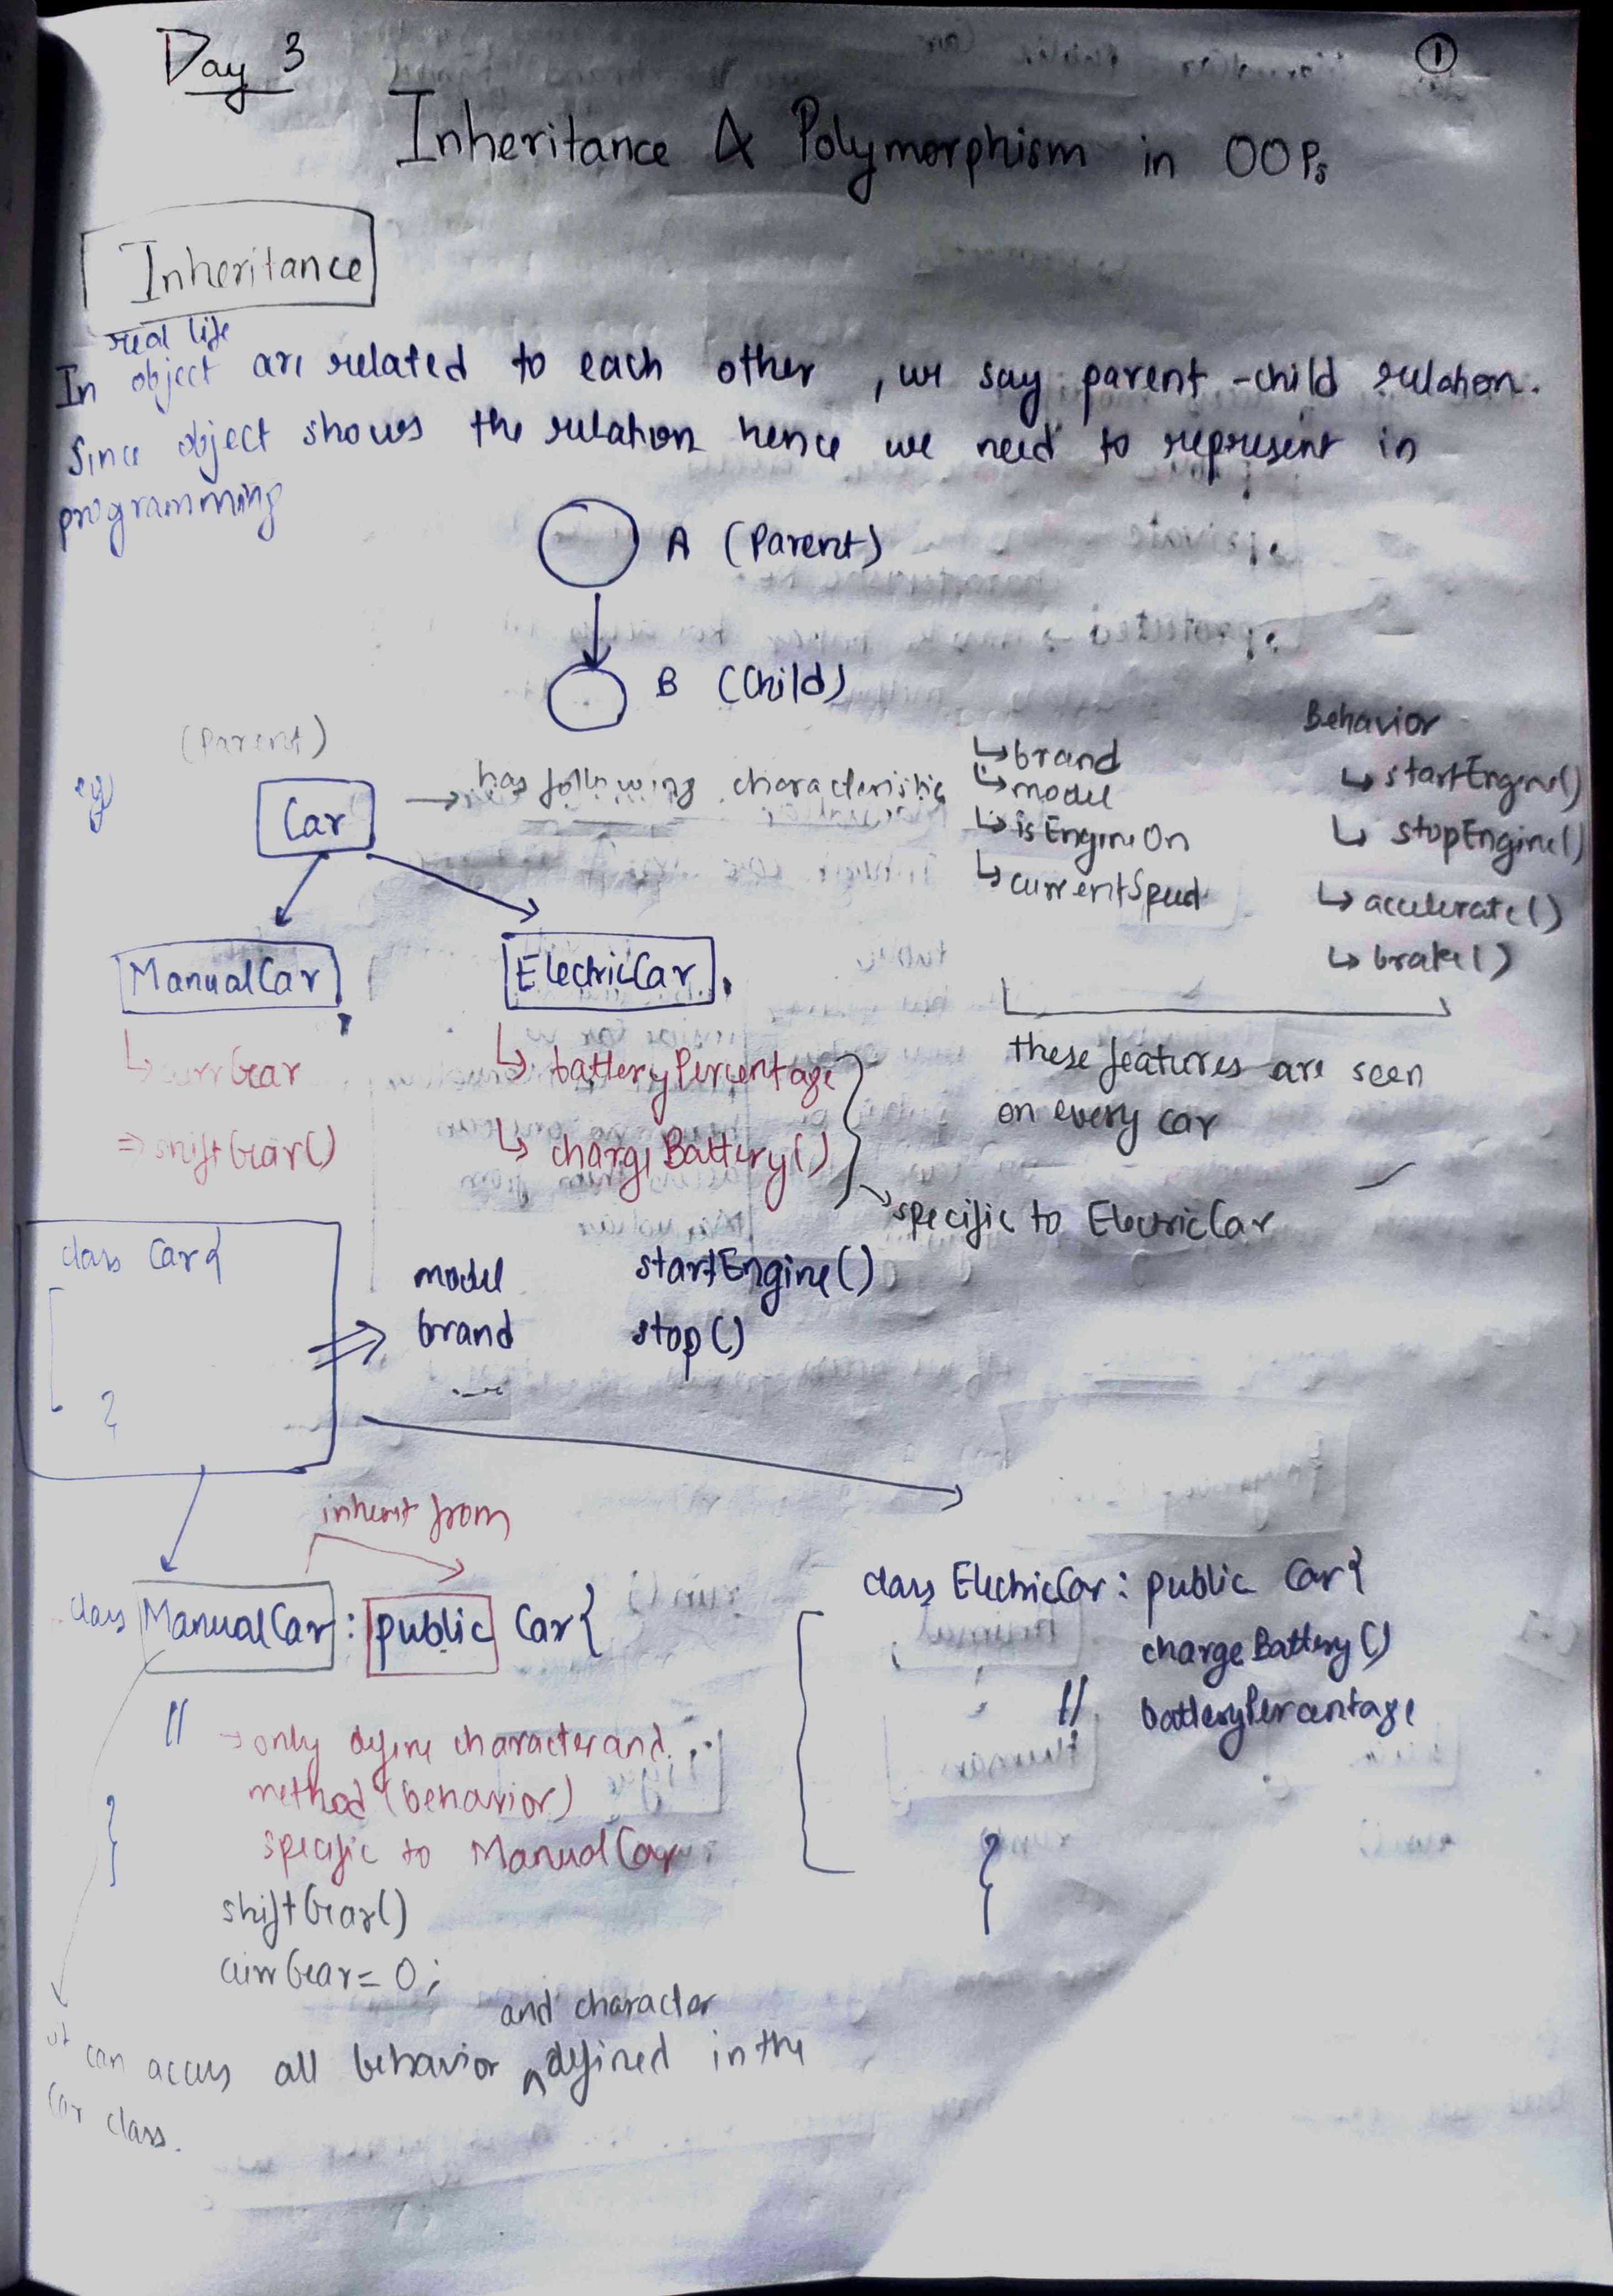 Day 3
①
Inheritance & Polymorphism in OOPs
Inheritance
real life
In object are related to each other , we say parent-child relation.
Since object shows the relation hence we need to represent in
programming
A (Parent)
B (Child)
(Parent)
eg
Car
→ has following characteristic
↳ brand
↳ model
↳ isEngineOn
↳ currentSpeed
Behavior
↳ startEngine()
↳ stopEngine()
↳ accelerate()
↳ brake()
ManualCar
ElectricCar
↳ currGear
⇒ shiftGear()
↳ batteryPercentage
↳ chargeBattery()
these features are seen
on every car
specific to ElectricCar
class Car{
}
model startEngine()
brand stop()
...
inherit from
class ManualCar : public Car{
// → only define character and
method (behavior)
specific to ManualCar
}
shiftGear()
currGear = 0;
class ElectricCar : public Car{
chargeBattery()
// batteryPercentage
}
and character
it can access all behavior ^ defined in the
Car class.